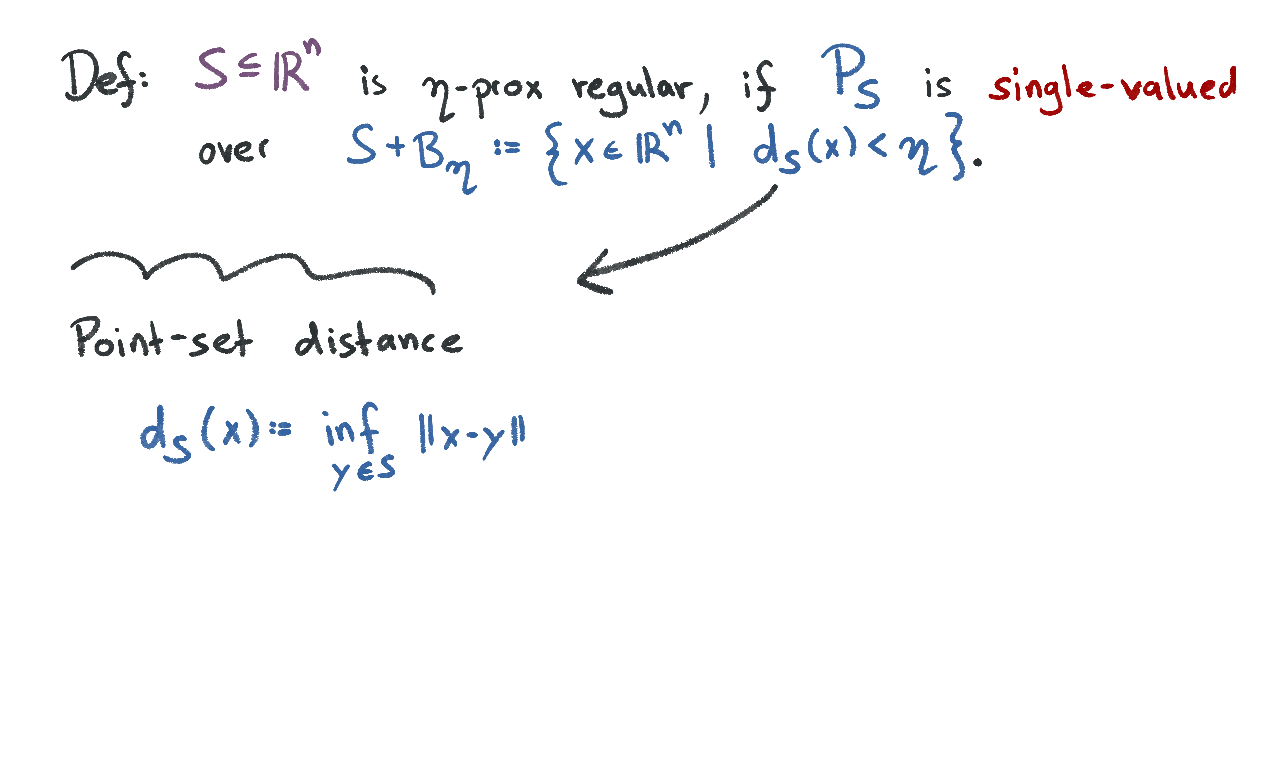 Def: S ⊆ ℝⁿ is η-prox regular, if P_S is single-valued
over S + B_η := { x ∈ ℝⁿ | d_S(x) < η }.
Point-set distance
d_S(x) := inf ‖x-y‖
y ∈ S